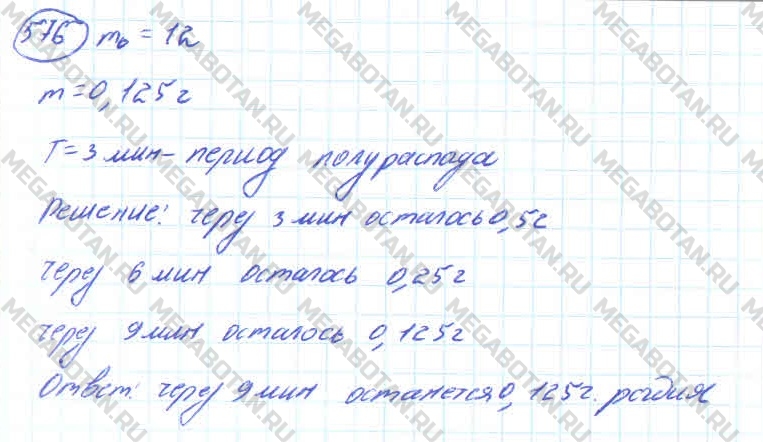 576 m₀ = 1г
m = 0,125г
T = 3 мин – период полураспада
Решение: через 3 мин осталось 0,5г
через 6 мин осталось 0,25г
через 9 мин осталось 0,125г
Ответ: через 9 мин останется 0,125г. родия
MEGABOTAN.RU